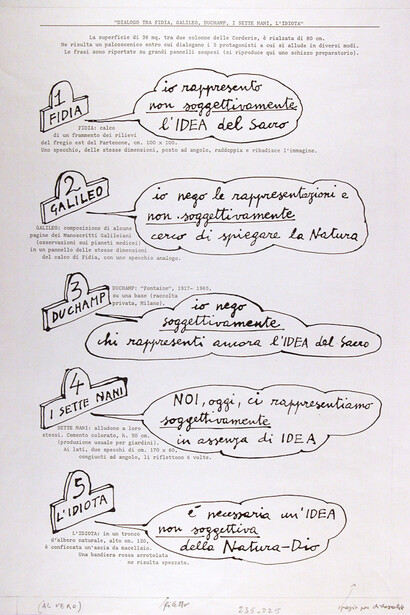 "DIALOGO TRA FIDIA, GALILEO, DUCHAMP, I SETTE NANI, L'IDIOTA"
La superficie di 36 mq. tra due colonne delle Corderie, è rialzata di 80 cm.
Ne risulta un palcoscenico entro cui dialogano i 5 protagonisti a cui si allude in diversi modi.
Le frasi sono riportate su grandi pannelli sospesi (si riproduce qui uno schizzo preparatorio).
1
FIDIA
io rappresento
non soggettivamente
l'IDEA del Sacro
FIDIA: calco
di un frammento dei rilievi
del fregio est del Partenone, cm. 100 x 100.
Uno specchio, delle stesse dimensioni, posto ad angolo, raddoppia e ribadisce l'immagine.
2
GALILEO
io nego le rappresentazioni e
non soggettivamente
cerco di spiegare la Natura
GALILEO: composizione di alcune
pagine dei Manoscritti Galileiani
(osservazioni sui pianeti medicei)
in un pannello delle stesse dimensioni
del calco di Fidia, con uno specchio analogo.
3
DUCHAMP
DUCHAMP: "Fontaine", 1917- 1965,
su una base (raccolta
privata, Milano).
io nego
soggettivamente
chi rappresenti ancora l'IDEA del Sacro
4
I SETTE NANI
NOI, oggi, ci rappresentiamo
soggettivamente
in assenza di IDEA
SETTE NANI: alludono a loro
stessi. Cemento colorato, H. 90 cm.
(produzione usuale per giardini).
Ai lati, due specchi di cm. 170 x 60,
congiunti ad angolo, li riflettono 6 volte.
5
L'IDIOTA
é necessaria un'IDEA
non soggettiva
della Natura-Dio
L'IDIOTA: in un tronco
d'albero naturale, alto cm. 120,
è conficcata un'ascia da macellaio.
Una bandiera rossa arrotolata
ne risulta spezzata.
(AL VERO)